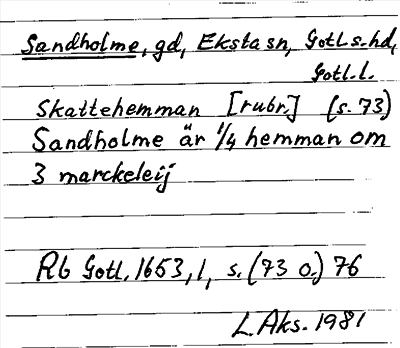 Sandholme, gd, Eksta sn, Gotl. s. hd,
Gotl. l.
Skattehemman [rubr.] (s. 73)
Sandholme är 1/4 hemman om
3 marckeleij
Rb Gotl. 1653, 1, s. (73 o.) 76
L. Aks. 1981